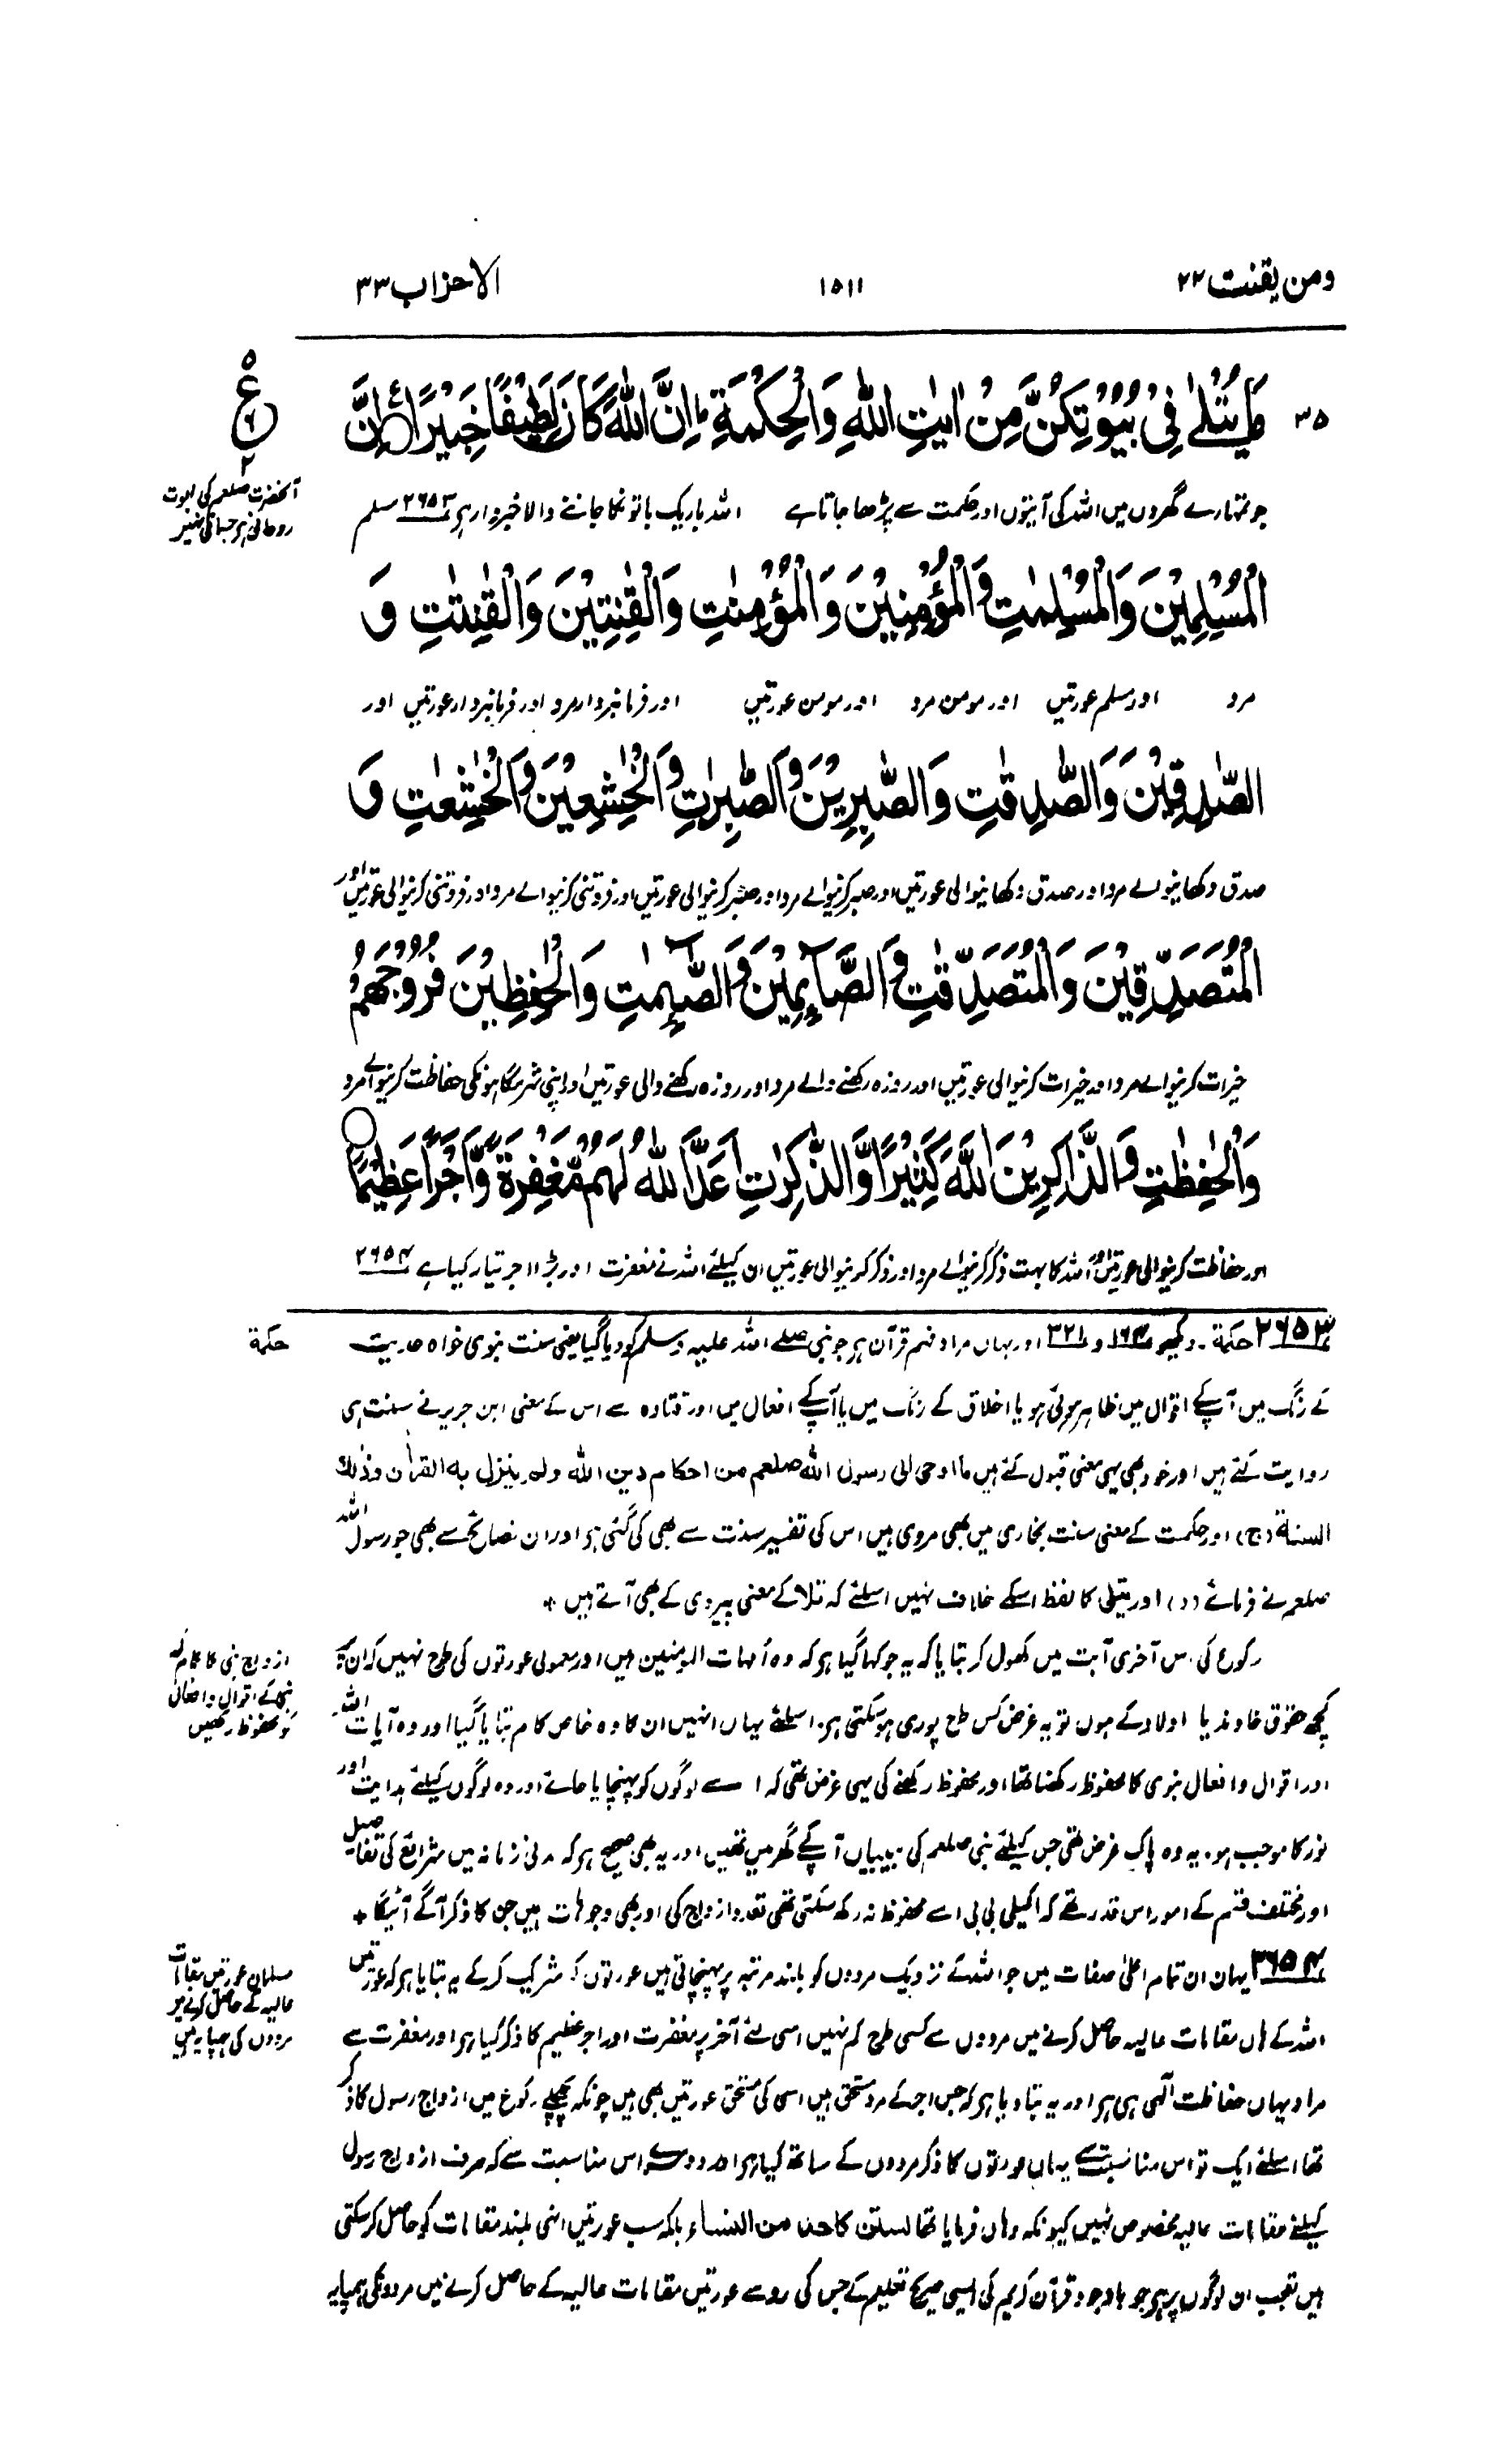 ومن یقنت ۲۲
۱۵۱۱
الاحزاب ۳۳
۳۵
مَا يُتْلٰى فِيْ بُيُوْتِكُنَّ مِنْ اٰيٰتِ اللّٰهِ وَالْحِكْمَةِ ؕ اِنَّ اللّٰهَ كَانَ لَطِيْفًا خَبِيْرًا ۝ اِنَّ
۵
ع
۶
۲
جو تمہارے گھروں میں اللہ کی آیتوں اور حکمت سے پڑھا جاتا ہے اللہ باریک باتونکا جاننے والا خبردار ہے ۲۶۵۳ مسلم
آنحضرت صلعم کی ابوت
روحانی ہے جسمانی نہیں
الْمُسْلِمِيْنَ وَالْمُسْلِمٰتِ وَالْمُؤْمِنِيْنَ وَالْمُؤْمِنٰتِ وَالْقٰنِتِيْنَ وَالْقٰنِتٰتِ وَ
مرد اور مسلم عورتیں اور مومن مرد اور مومن عورتیں اور فرمانبردار مرد اور فرمانبردار عورتیں اور
الصّٰدِقِيْنَ وَالصّٰدِقٰتِ وَالصّٰبِرِيْنَ وَالصّٰبِرٰتِ وَالْخٰشِعِيْنَ وَالْخٰشِعٰتِ وَ
صدق دکھانیوالے مرد اور صدق دکھانیوالی عورتیں اور صبر کرنیوالے مرد اور صبر کرنیوالی عورتیں اور فروتنی کرنیوالے مرد اور فروتنی کرنیوالی عورتیں اور
الْمُتَصَدِّقِيْنَ وَالْمُتَصَدِّقٰتِ وَالصَّآئِمِيْنَ وَالصّٰٓئِمٰتِ وَالْحٰفِظِيْنَ فُرُوْجَهُمْ
خیرات کرنیوالے مرد اور خیرات کرنیوالی عورتیں اور روزہ رکھنے والے مرد اور روزہ رکھنے والی عورتیں اور اپنی شرمگاہونکی حفاظت کرنیوالے مرد
وَالْحٰفِظٰتِ وَالذّٰكِرِيْنَ اللّٰهَ كَثِيْرًا وَّالذّٰكِرٰتِ اَعَدَّ اللّٰهُ لَهُمْ مَّغْفِرَةً وَّاَجْرًا عَظِيْمًا ۝
اور حفاظت کرنیوالی عورتیں اور اللہ کا بہت ذکر کرنیوالے مرد اور ذکر کرنیوالی عورتیں ان کیلئے اللہ نے مغفرت اور بڑا اجر تیار کیا ہے ۲۶۵۴
۲۶۵۳ حکمة۔ دیکھو ۱۶۴ و ۳۲۱ اور یہاں مراد فہم قرآن ہے جو نبی صلے اللہ علیہ وسلم کو دیا گیا یعنی سنت نبوی خواہ حدیث
حکمة
کے رنگ میں آپکے اقوال میں ظاہر ہوئی ہو یا اخلاق کے رنگ میں یا آپکے افعال میں اور قتادہ سے اس کے معنی ابن جریر نے سنت ہی
روایت کئے ہیں اور خود بھی یہی معنی قبول کئے ہیں ما اوحی الی رسول اللہ صلعم من احکام دین اللہ ولم ینزل به القراٰن وذٰلك
السنة (ج) اور حکمت کے معنی سنت بخاری میں بھی مروی ہیں اس کی تفسیر سنت سے بھی کی گئی ہے اور ان نصائح سے بھی جو رسول اللہ
صلعم نے فرمائے (د) اور یتلی کا لفظ اسکے خلاف نہیں اسلئے کہ تلا کے معنی پیروی کے بھی آتے ہیں ٭
رکوع کی اس آخری آیت میں کھول کر بتایا کہ یہ جو کہا گیا ہے کہ وہ امہات المومنین ہیں اور معمولی عورتوں کی طرح نہیں کہ ان کے
ازواج نبی کا کام کہ
نبی کے اقوال و افعال
کو محفوظ رکھیں
کچھ حقوق خاوند یا اولاد کے ہوں تو یہ غرض کس طرح پوری ہو سکتی ہے۔ اسلئے یہاں انہیں ان کا وہ خاص کام بتایا گیا اور وہ آیات اللہ
اور اقوال و افعال نبوی کا محفوظ رکھنا تھا اور محفوظ رکھنے کی یہی غرض تھی کہ اسے لوگوں کو پہنچایا جائے اور وہ لوگوں کیلئے ہدایت اور
نور کا موجب ہو۔ یہ وہ پاک غرض تھی جس کیلئے نبی صلعم کی بیبیاں آپکے گھر میں تھیں اور یہ بھی صحیح ہے کہ مدنی زمانہ میں شرائع کی تفاصیل
اور مختلف قسم کے امور اس قدر تھے کہ اکیلی بی بی اسے محفوظ نہ رکھ سکتی تھی تعدد ازواج کی اور بھی وجوہات ہیں جن کا ذکر آگے آئیگا ٭
۲۶۵۴ یہاں ان تمام اعلیٰ صفات میں جو اللہ کے نزدیک مردوں کو بلند مرتبہ پر پہنچاتی ہیں عورتوں کو شریک کر کے یہ بتایا ہے کہ عورتیں
مسلمان عورتیں مقامات
عالیہ کے حاصل کرنے میں
مردوں کی ہمپایہ ہیں
اللہ کے ہاں مقامات عالیہ حاصل کرنے میں مردوں سے کسی طرح کم نہیں اسی لئے آخر پر مغفرت اور اجر عظیم کا ذکر کیا ہے اور مغفرت سے
مراد یہاں حفاظت الٰہی ہی ہے اور یہ بتا دیا ہے کہ جس اجر کے مرد مستحق ہیں اسی کی مستحق عورتیں بھی ہیں چونکہ پچھلے رکوع میں ازواج رسول کا ذکر
تھا اسلئے ایک تو اس مناسبت سے یہاں عورتوں کا ذکر مردوں کے ساتھ کیا ہے اور دوسرے اس مناسبت سے کہ صرف ازواج رسول
کیلئے مقامات عالیہ مخصوص نہیں کیونکہ وہاں فرمایا تھا لستن کاحد من النساء بلکہ سب عورتیں انہی بلند مقامات کو حاصل کر سکتی
ہیں تعجب ان لوگوں پر ہے جو باوجود قرآن کریم کی ایسی صریح تعلیم کے جس کی رو سے عورتیں مقامات عالیہ کے حاصل کرنے میں مردونکی ہمپایہ